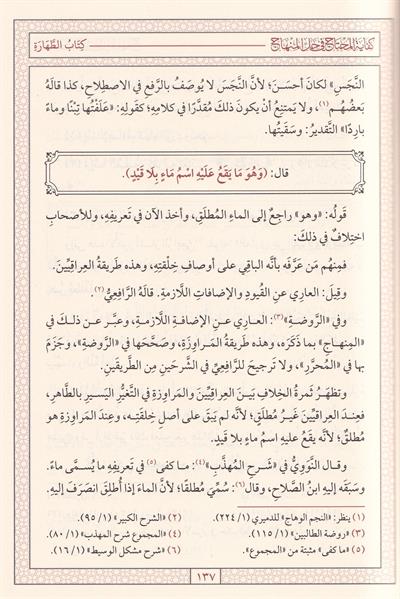 كفاية المحتاج في حل المنهاج
كِتَابُ الطَّهَارَةِ
النَّجَسِ» لكانَ أحسَنَ؛ لأنَّ النَّجَسَ لا يُوصَفُ بالرَّفعِ في الاصطِلاحِ، كذا قالَهُ
بَعضُهُـم(١)، ولا يَمتَنِعُ أنْ يكونَ ذلكَ مُقدَّرًا في كلامِهِ؛ كقَولِهِ: «عَلَفْتُها تِبْنًا وماءً
بارِدًا» التَّقديرُ: وسَقَيتُها.
قال: (وَهُوَ مَا يَقَعُ عَلَيْهِ اسْمُ مَاءٍ بِلَا قَيْدٍ).
قولُه: «وهو» راجِعٌ إلى الماءِ المُطلَقِ، وأخذَ الآنَ في تَعريفِهِ، وللأصحابِ
اختِلافٌ في ذلكَ:
فمِنهُم مَن عَرَّفَه بأنَّه الباقِي على أوصافِ خِلْقتِهِ، وهذه طَريقةُ العِراقِيِّينَ.
وقِيلَ: العارِي عنِ القُيودِ والإضافاتِ اللَّازمةِ. قالهُ الرَّافِعِيُّ(٢).
وفي «الرَّوضةِ»(٣): العـاري عـنِ الإضافـةِ اللَّازمـةِ، وعبَّـر عـن ذلـكَ في
«المِنهـاجِ» بما ذكَرَه، وهذه طَريقـةُ المَـراوِزةِ، وصَحَّحَها في «الرَّوضةِ»، وجَزَمَ
بها في «المُحرَّرِ»، ولا تَرجيحَ للرَّافِعِيِّ في الشَّرحَينِ مِن الطَّريقَينِ.
وتظهَـرُ ثَمـرةُ الخِلافِ بَيـنَ العِراقِيِّيـنَ والمَراوِزةِ في التَّغيُّرِ اليَسـيرِ بالطَّاهرِ،
فعِنـدَ العِراقِيِّينَ غَيـرُ مُطلَقٍ؛ لأنَّه لم يَبقَ على أصلِ خِلقَتِـه، وعِنـدَ المَراوِزةِ هو
مُطلقٌ؛ لأنَّه يقَعُ عليهِ اسمُ ماءٍ بلا قيدٍ.
وقـال النَّـوَوِيُّ في «شَـرحِ المُهذَّبِ»(٤): مـا كفى(٥) في تَعريفِـهِ ما يُسـمَّى ماءً.
وسبَقَه إليهِ ابنُ الصَّلاحِ، وقالَ(٦): سُمِّيَ مُطلقًا؛ لأنَّ الماءَ إذا أُطلِقَ انصَرَفَ إليهِ.
(١) ينظر: «النجم الوهاج» للدميري (١/ ٢٢٤).
(٢) «الشرح الكبير» (١/ ٩٥).
(٣) «روضة الطالبين» (١/ ١١٥).
(٤) «المجموع شرح المهذب» (١/ ٨٠).
(٥) «ما كفى» مثبتة من «المجموع».
(٦) «شرح مشكل الوسيط» (١/ ١٦).
١٣٧